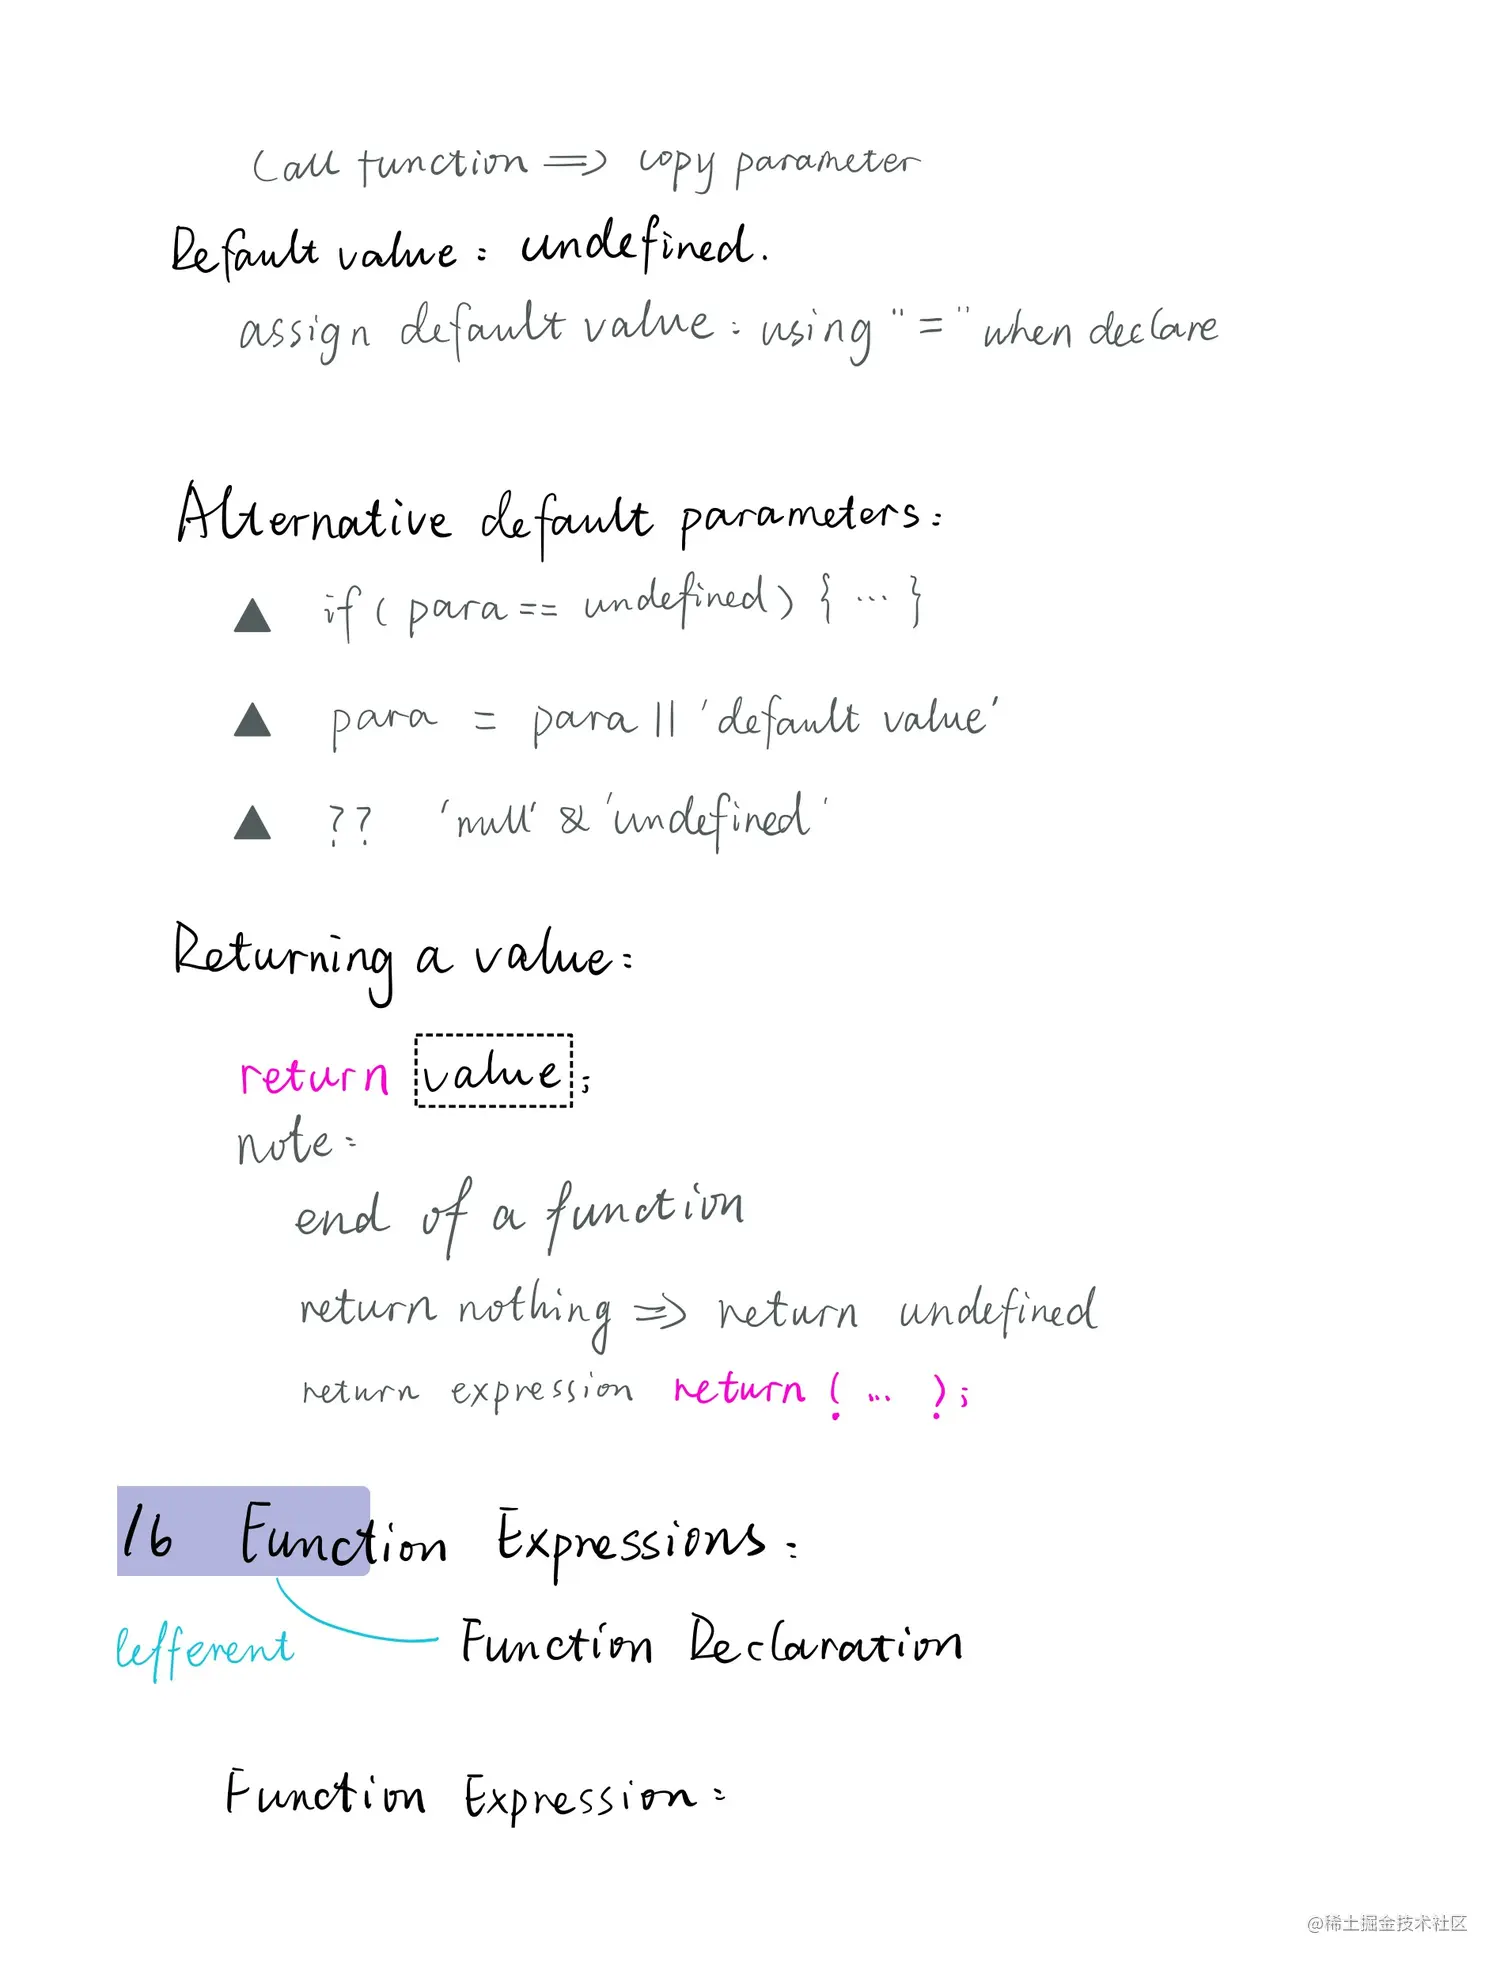 Call function => copy parameter
Default value: undefined.
assign default value: using "=" when declare
Alternative default parameters:
▲ if (para == undefined) { ... }
▲ para = para || 'default value'
▲ ?? 'null' & 'undefined'
Returning a value:
return value;
note:
end of a function
return nothing => return undefined
return expression return ( ... );
16 Function Expressions:
lefferent Function Declaration
Function Expression:
@稀土掘金技术社区